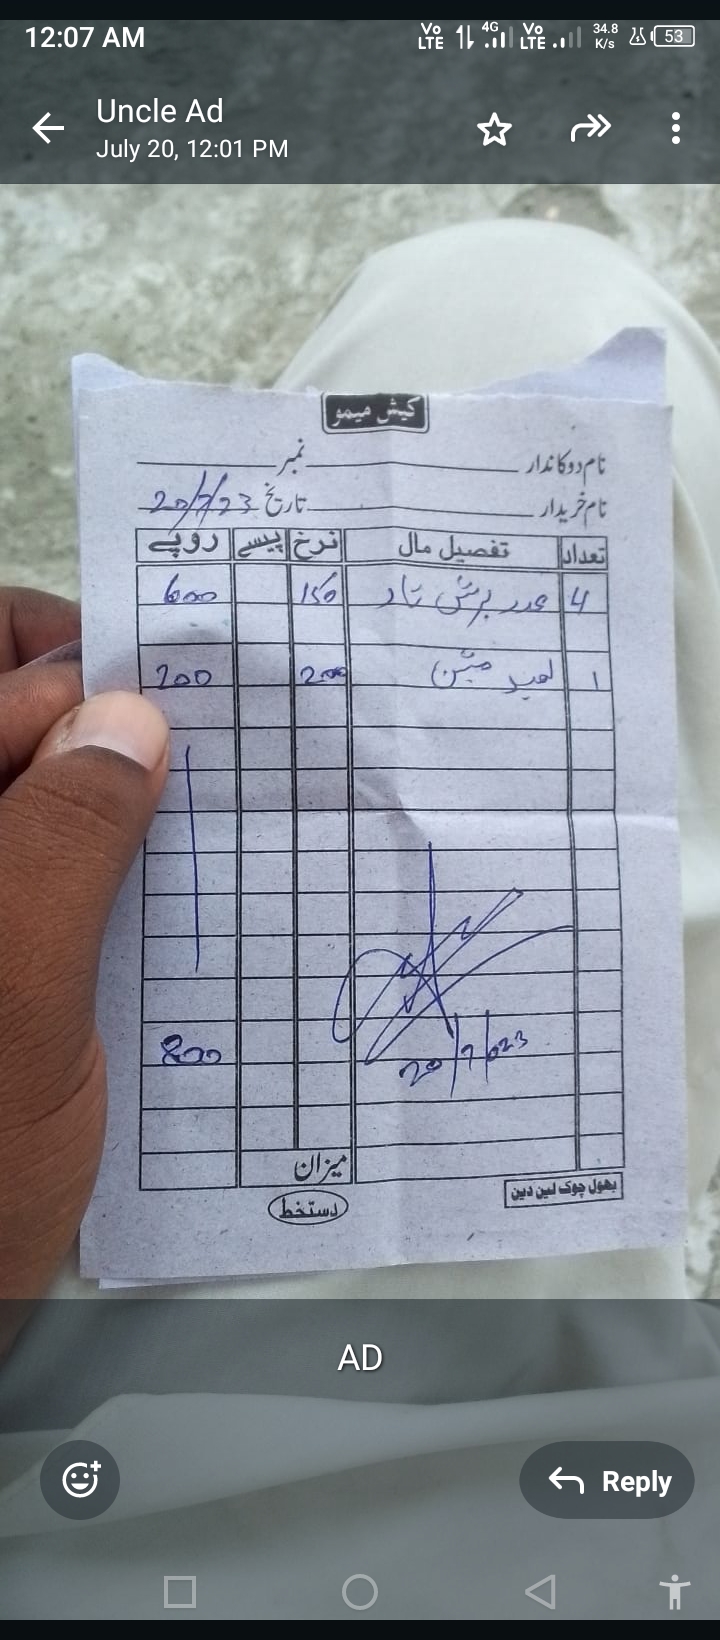 12:07 AM
Vo LTE 4G Vo LTE 34.8 K/s 53
Uncle Ad
July 20, 12:01 PM
کیش میمو
نام دوکاندار نمبر
نام خریدار تاریخ 20/7/23
تعداد تفصیل مال نرخ پیسے روپے
4 عدد برش تار 150 600
1 200 200
800
20/7/023
میزان
بھول چوک لین دین
دستخط
AD
Reply